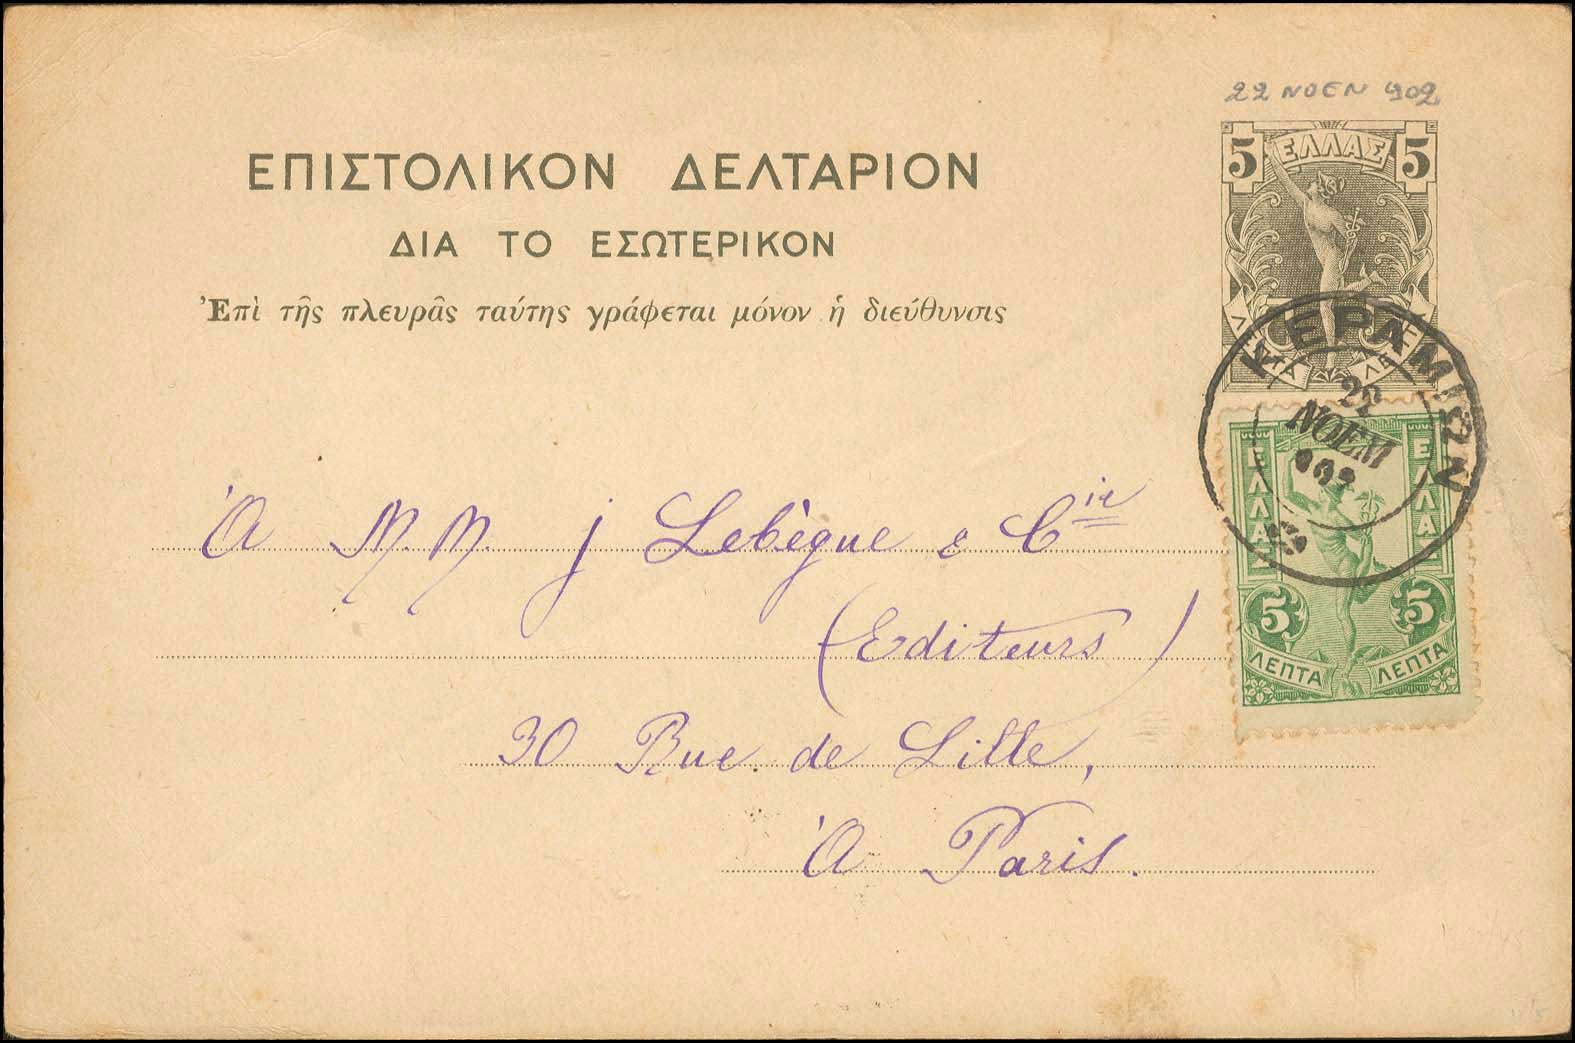 22 ΝΟΕΝ 902
ΕΠΙΣΤΟΛΙΚΟΝ ΔΕΛΤΑΡΙΟΝ
ΔΙΑ ΤΟ ΕΣΩΤΕΡΙΚΟΝ
Ἐπὶ τῆς πλευρᾶς ταύτης γράφεται μόνον ἡ διεύθυνσις
5 ΕΛΛΑΣ 5
ΛΕΠΤΑ ΛΕ
ΚΕΡΑΜΙΩΝ
22
ΝΟΕΜ
902
ΕΛΛΑΣ ΕΛΛΑΣ
5 5
ΛΕΠΤΑ ΛΕΠΤΑ
À M.M. J Lebègue & Cie
(Editeurs)
30 Rue de Lille,
À Paris.